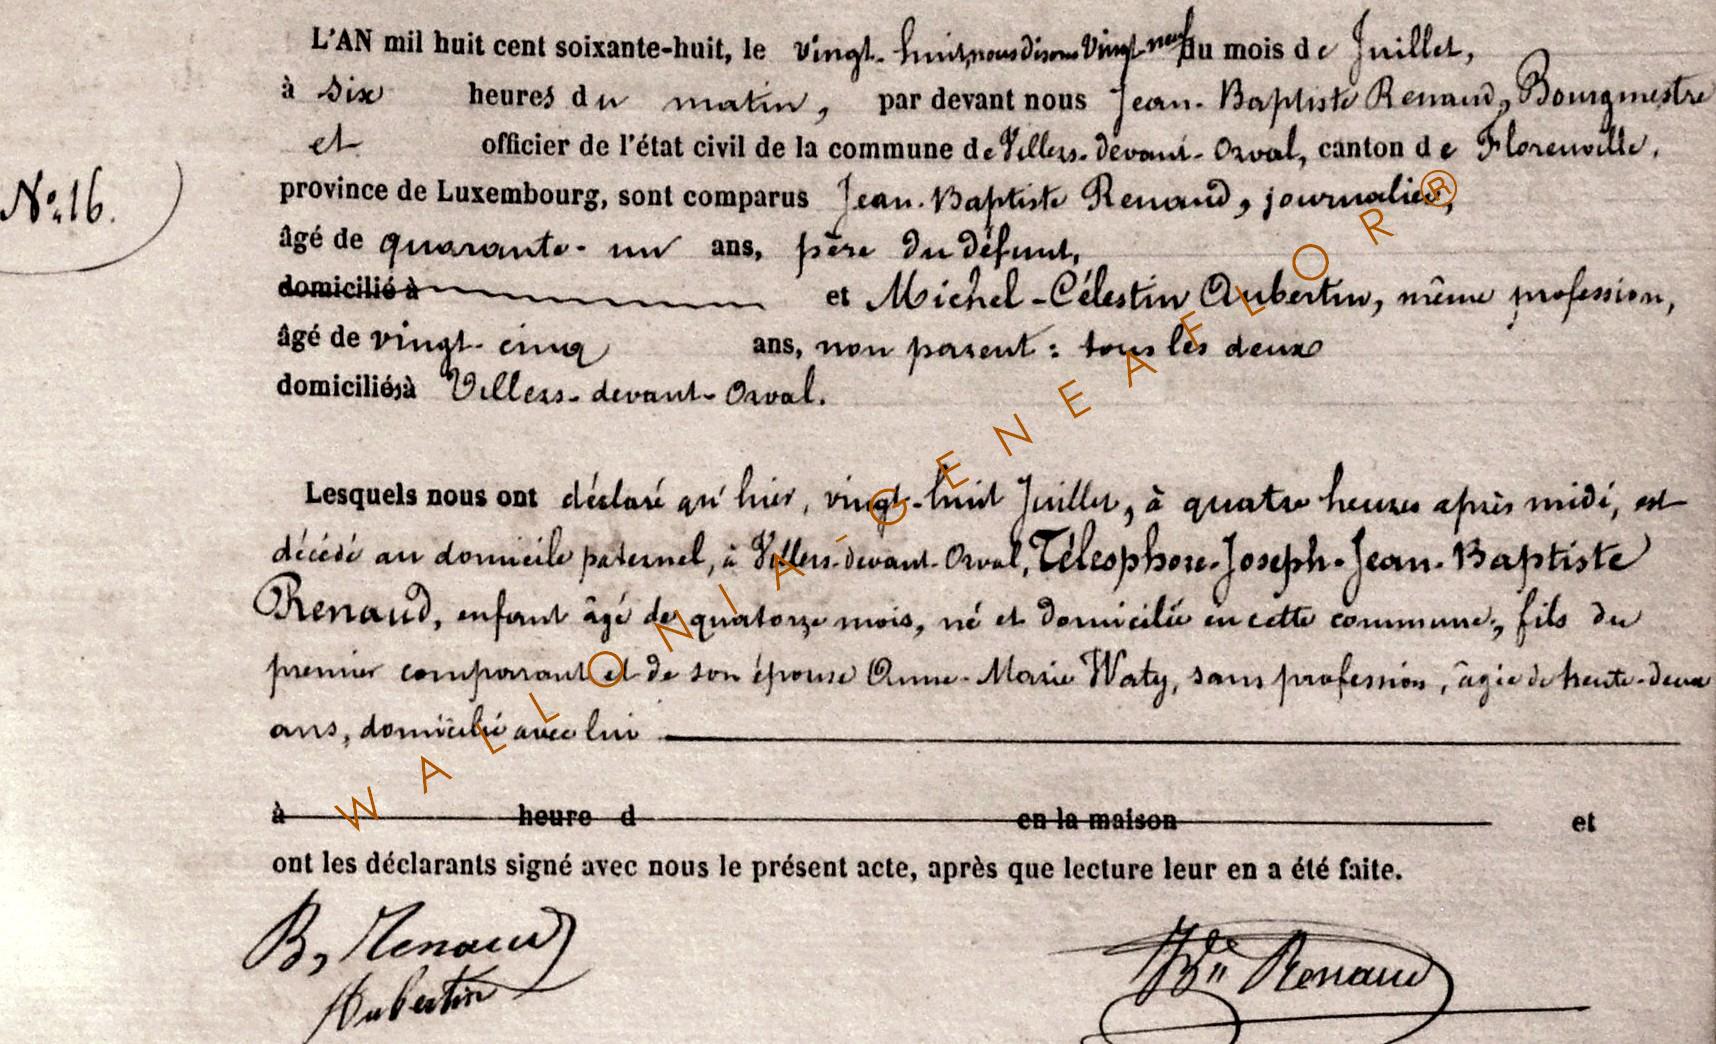 L'AN mil huit cent soixante-huit, le vingt-huit, nous disons vingt-neuf du mois de Juillet,
à six heures du matin, par devant nous Jean-Baptiste Renaud, Bourgmestre
et officier de l'état civil de la commune de Villers-devant-Orval, canton de Florenville,
N° 16.
province de Luxembourg, sont comparus Jean-Baptiste Renaud, journalier,
âgé de quarante-un ans, père du défunt,
domicilié à et Michel-Célestin Aubertin, même profession,
âgé de vingt-cinq ans, non parent : tous les deux
domiciliés à Villers-devant-Orval.
Lesquels nous ont déclaré qu'hier, vingt-huit Juillet, à quatre heures après midi, est
décédé au domicile paternel, à Villers-devant-Orval, Télesphore-Joseph-Jean-Baptiste
Renaud, enfant âgé de quatorze mois, né et domicilié en cette commune, fils du
premier comparant et de son épouse Anne-Marie Waty, sans profession, âgée de trente-deux
ans, domicilié avec lui
à heure d en la maison et
ont les déclarants signé avec nous le présent acte, après que lecture leur en a été faite.
B, Renaud
Aubertin
Renaud
WALLONIA-GENEAFLOR®